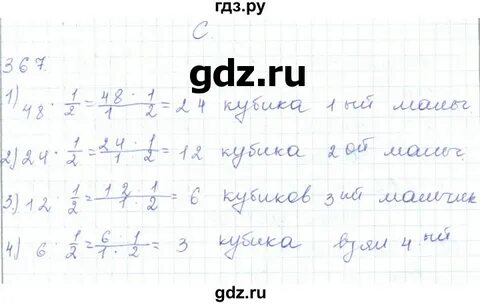 гдз.ру
С.
367.
1) 48 · 1/2 = 48 · 1 / 1 · 2 = 24 кубика 1ый мальч
gdz.ru
2) 24 · 1/2 = 24 · 1 / 1 · 2 = 12 кубика 2ой мальч.
3) 12 · 1/2 = 12 · 1 / 1 · 2 = 6 кубиков 3ий мальчик
4) 6 · 1/2 = 6 · 1 / 1 · 2 = 3 кубика взял 4ый
gdz.ru